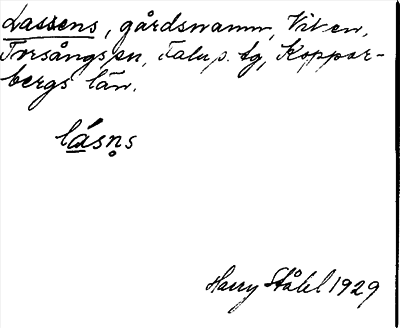 Lassens, gårdsnamn, Viken,
Torsångs sn, Falu s. tg, Koppar-
bergs län.
låsn̥s
Harry Ståhl 1929